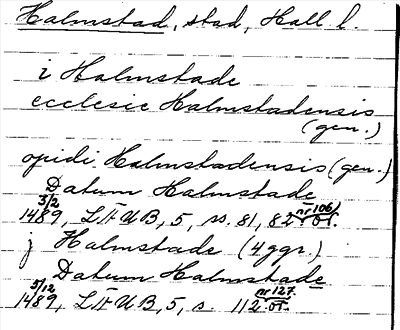 Halmstad, stad, Hall l.
i Halmstade
ecclesie Halmstadensis
(gen.)
opidi Halmstadensis (gen.)
Datum Halmstade
3/2 1489, LÄUB, 5, s. 81, 82 nr 106) or.
j Halmstade (4 ggr.)
Datum Halmstade
5/12 1489, LÄUB, 5, s. 112 nr 127. or.